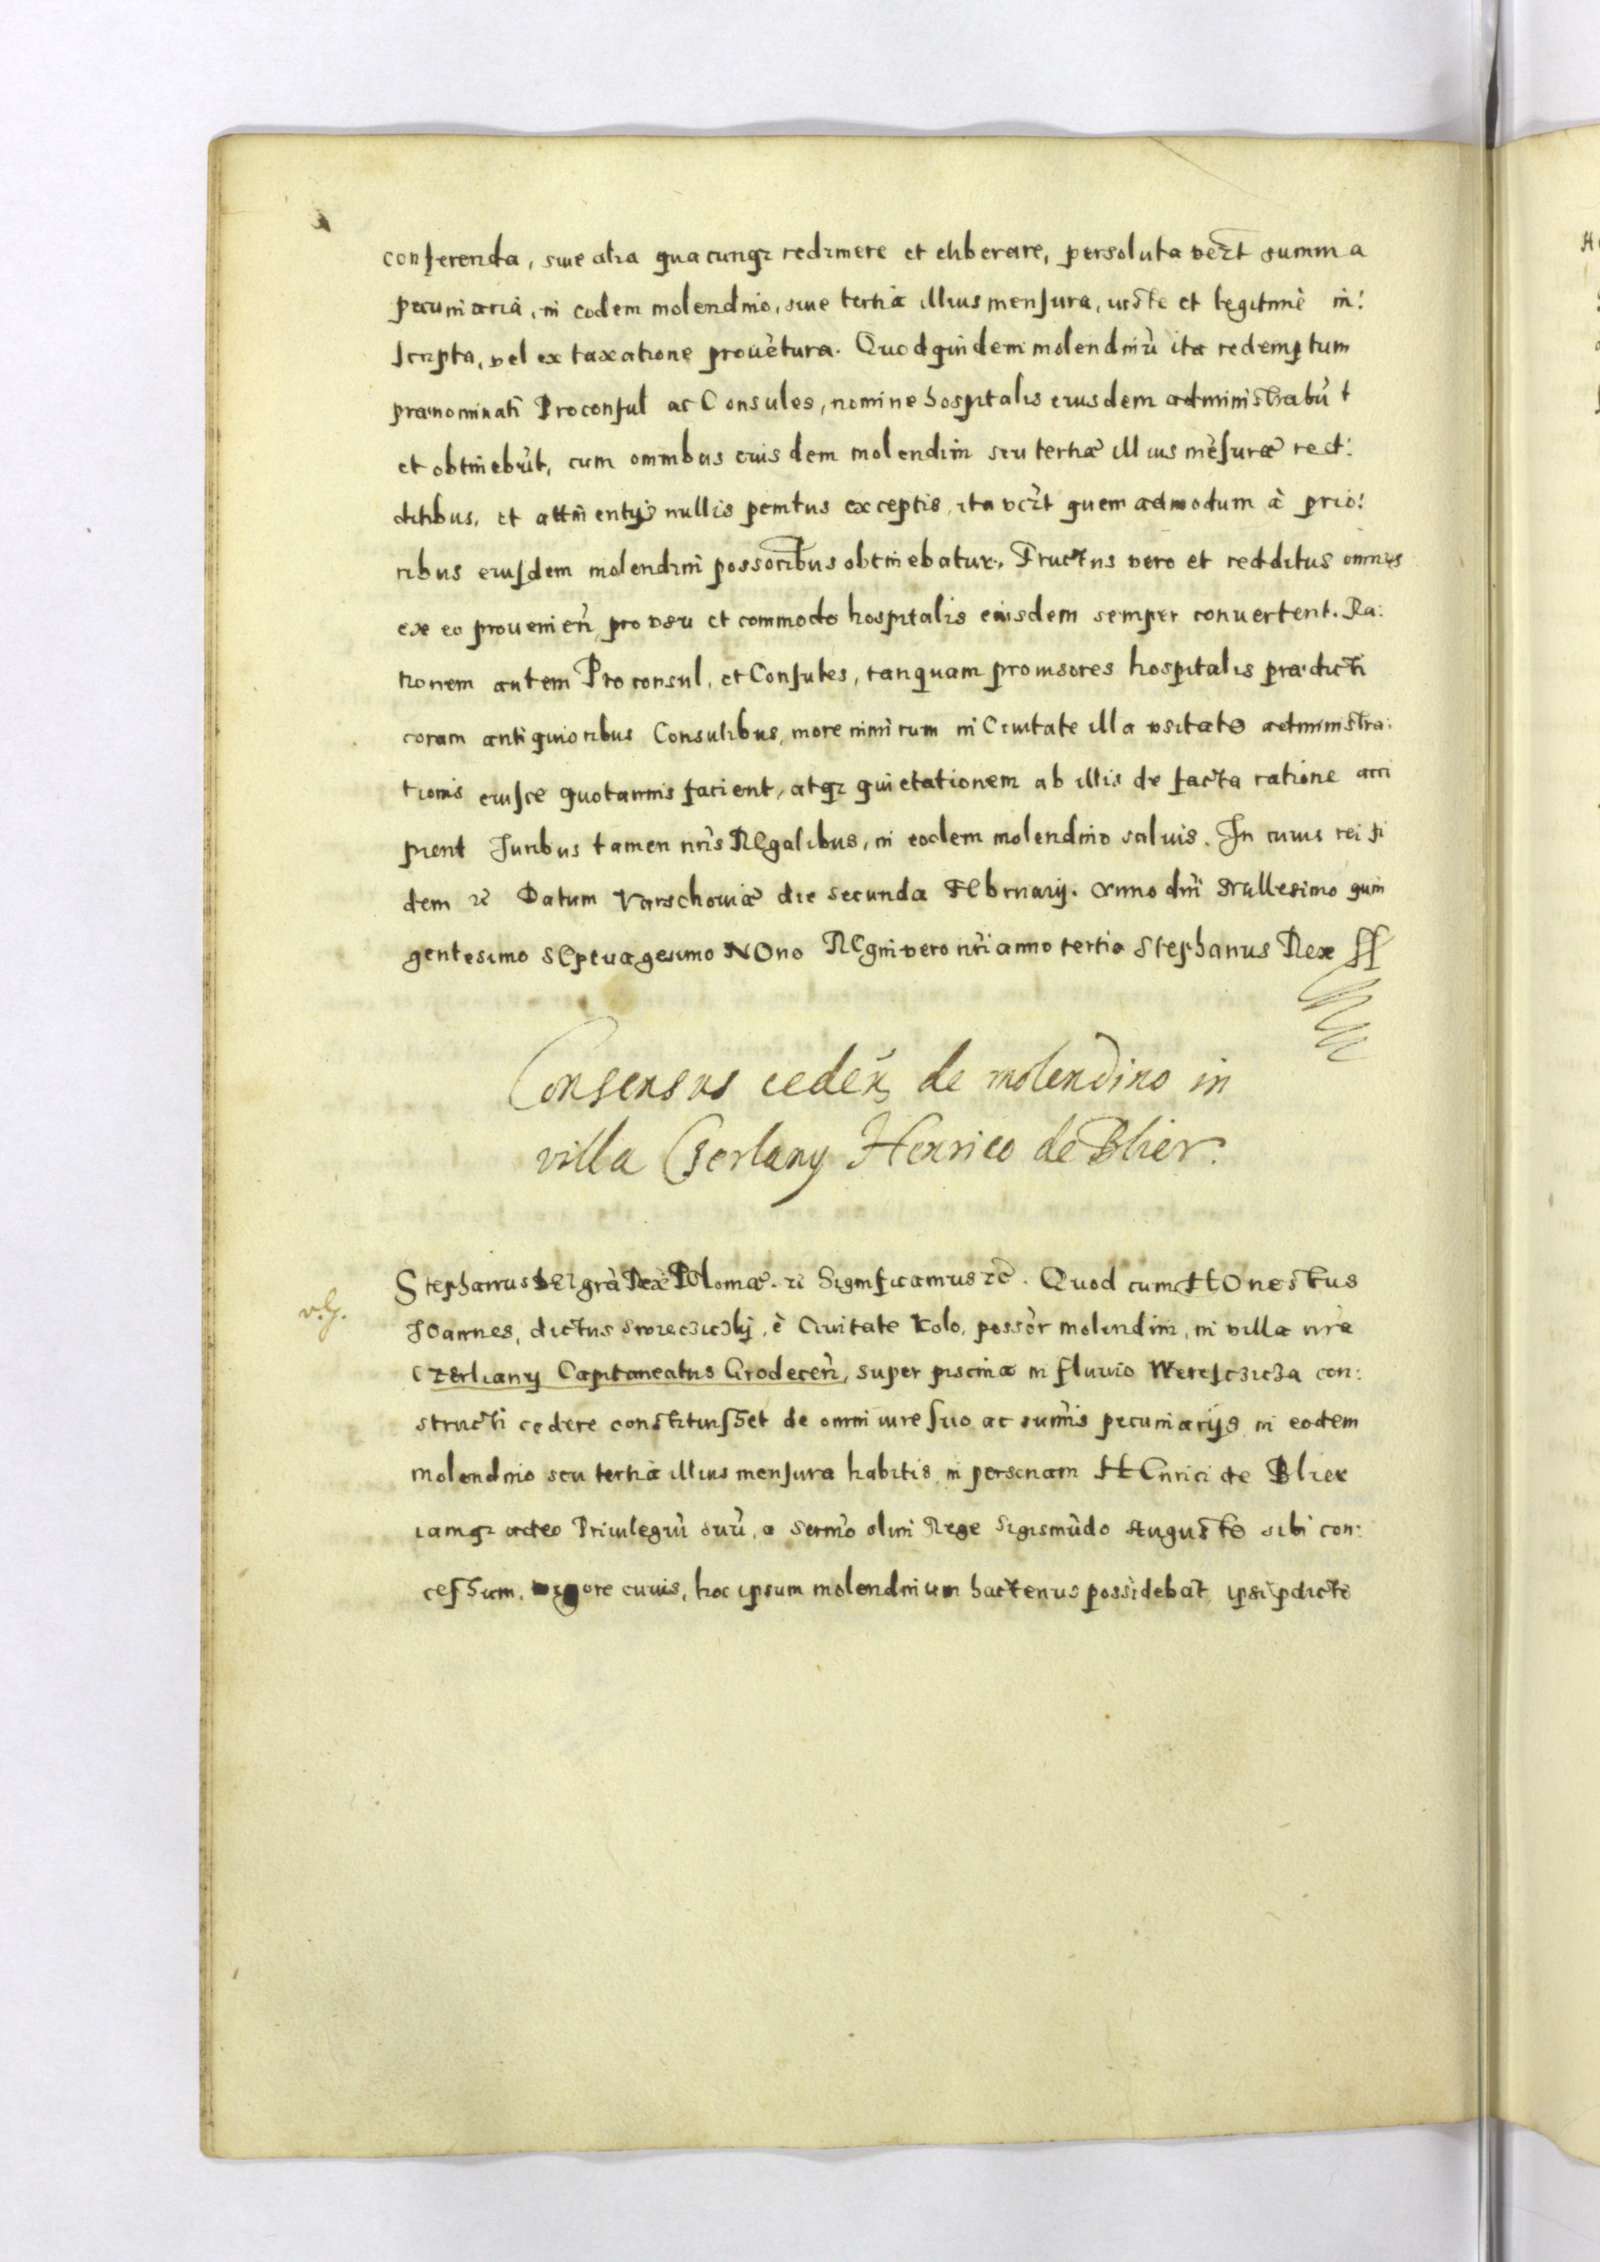 conferenda, siue alia quacunqz redimere et eliberare, persoluta verт summa
pecuniaria, in eodem molendino, siue tertia illius mensura, iuste et legitimè in:
scripta, vel ex taxatione prouētura. Quodquidem molendinū ita redemptum
prænominati Proconsul ac Consules, nomine hospitalis eiusdem administrabūt
et obtinebūt, cum omnibus eiusdem molendini seu tertiæ illius mēsuræ red:
ditibus, et attinentijs nullis penitus exceptis, ita vert quemadmodum à prio:
ribus eiusdem molendini possoribus obtinebatur. Fructus vero et redditus omnes
ex eo prouenieñ, pro vsu et commodo hospitalis eiusdem semper conuertent. Ra:
tionem autem Proconsul, et Consules, tanquam prouisores hospitalis prædicti
coram antiquioribus Consulibus, more nimirum in Ciuitate illa vsitato administra:
tionis eiusce quotannis facient, atqz quietationem ab illis de facta ratione acci
pient Juribus tamen nris REgalibus, in eodem molendino saluis. In cuius rei fi
dem zc Datum Varschouiæ die secunda FEbruarij. Anno dni Millesimo quin
gentesimo SEptuagesimo NOno REgni vero nri anno tertio Stephanus Rex ss
Consensus cedeñ de molendino in
villa Czerlany Henrico de Blier.
Stephanus DEI grà Rex POloniæ. zc Significamus zc. Quod cum HOnestus
JOannes, dictus Swiecziczkij, è Ciuitate Kolo, possòr molendini, in villa nra
Czerliany Capitaneatus Grodeceñ, super piscina in fluuio Weresczicza con:
structi cedere constituisset de omni iure suo ac sumis pecuniarijs in eodem
molendino seu tertia illius mensura habitis in personam HEnrici de Blier
iamqz adeo Priuilegiū suū, a Sermo olim Rege Sigismūdo Augusto sibi con:
cessum, vigore cuius, hoc ipsum molendinum hactenus possidebat, ipsi pdicto